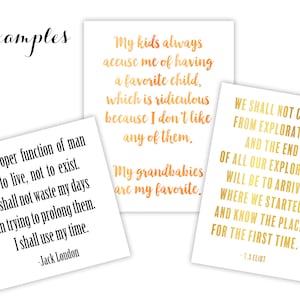 examples
My kids always
accuse me of having
a favorite child,
which is ridiculous
because I don't like
any of them.
My grandbabies
are my favorite.
oper function of man
to live, not to exist.
shall not waste my days
in trying to prolong them.
I shall use my time.
-Jack London
WE SHALL NOT C
FROM EXPLORAT
AND THE END
OF ALL OUR EXPLOR
WILL BE TO ARRIV
WHERE WE STARTED
AND KNOW THE PLAC
FOR THE FIRST TIME.
- T.S ELIOT